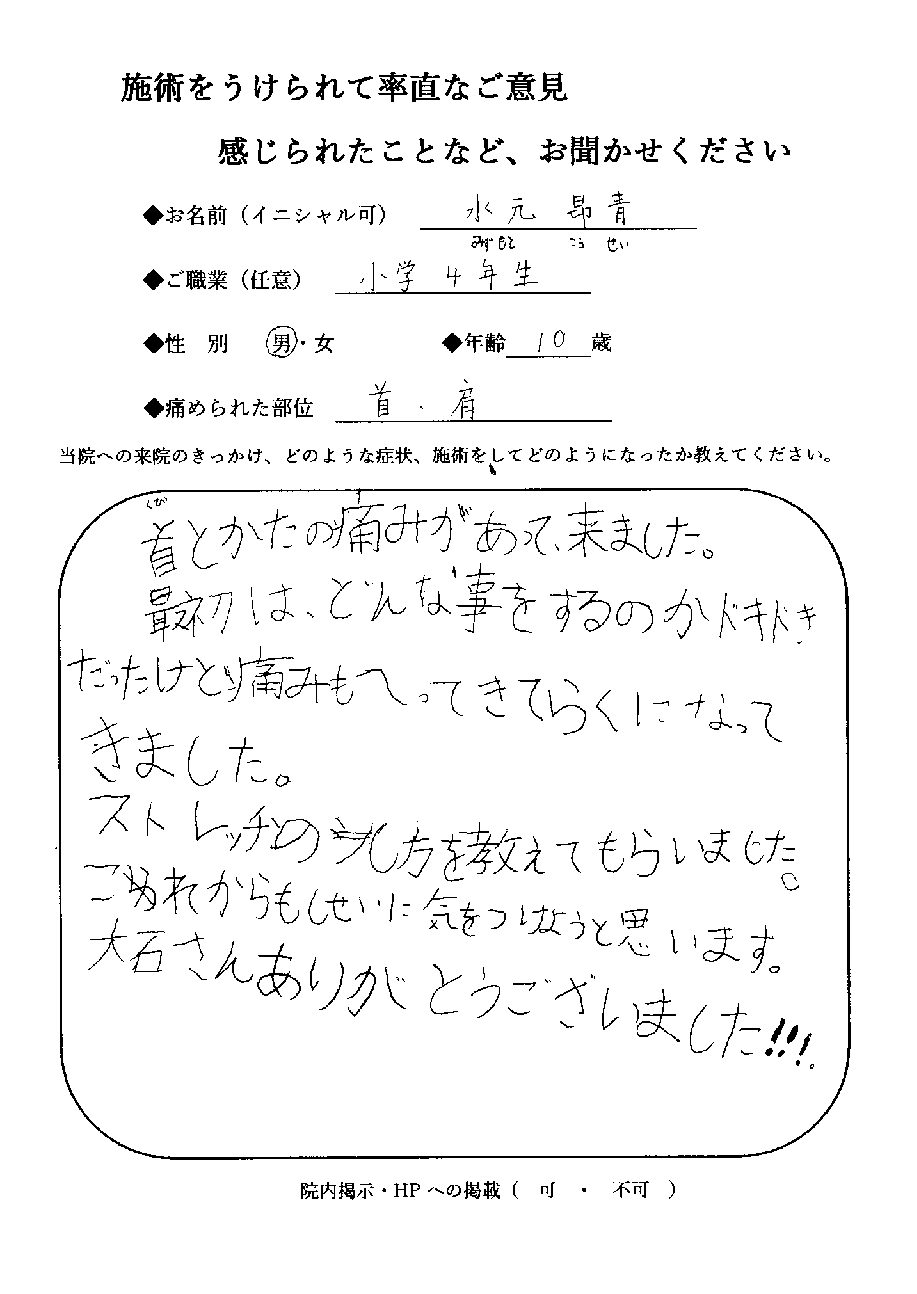 施術をうけられて率直なご意見
感じられたことなど、お聞かせください
◆お名前（イニシャル可） 水元 昂青
みずもと こうせい
◆ご職業（任意） 小学4年生
◆性 別 男・女 ◆年齢 10 歳
◆痛められた部位 首・肩
当院への来院のきっかけ、どのような症状、施術をしてどのようになったか教えてください。
くび
首とかたの痛みがあって、来ました。
最初は、どんな事をするのかドキドキ
だったけど痛みもへってきてらくになって
きました。
ストレッチの し方を教えてもらいました。
これからもしせいに気をつけようと思います。
大石さんありがとうございました!!!。
院内掲示・HPへの掲載（ 可 ・ 不可 ）